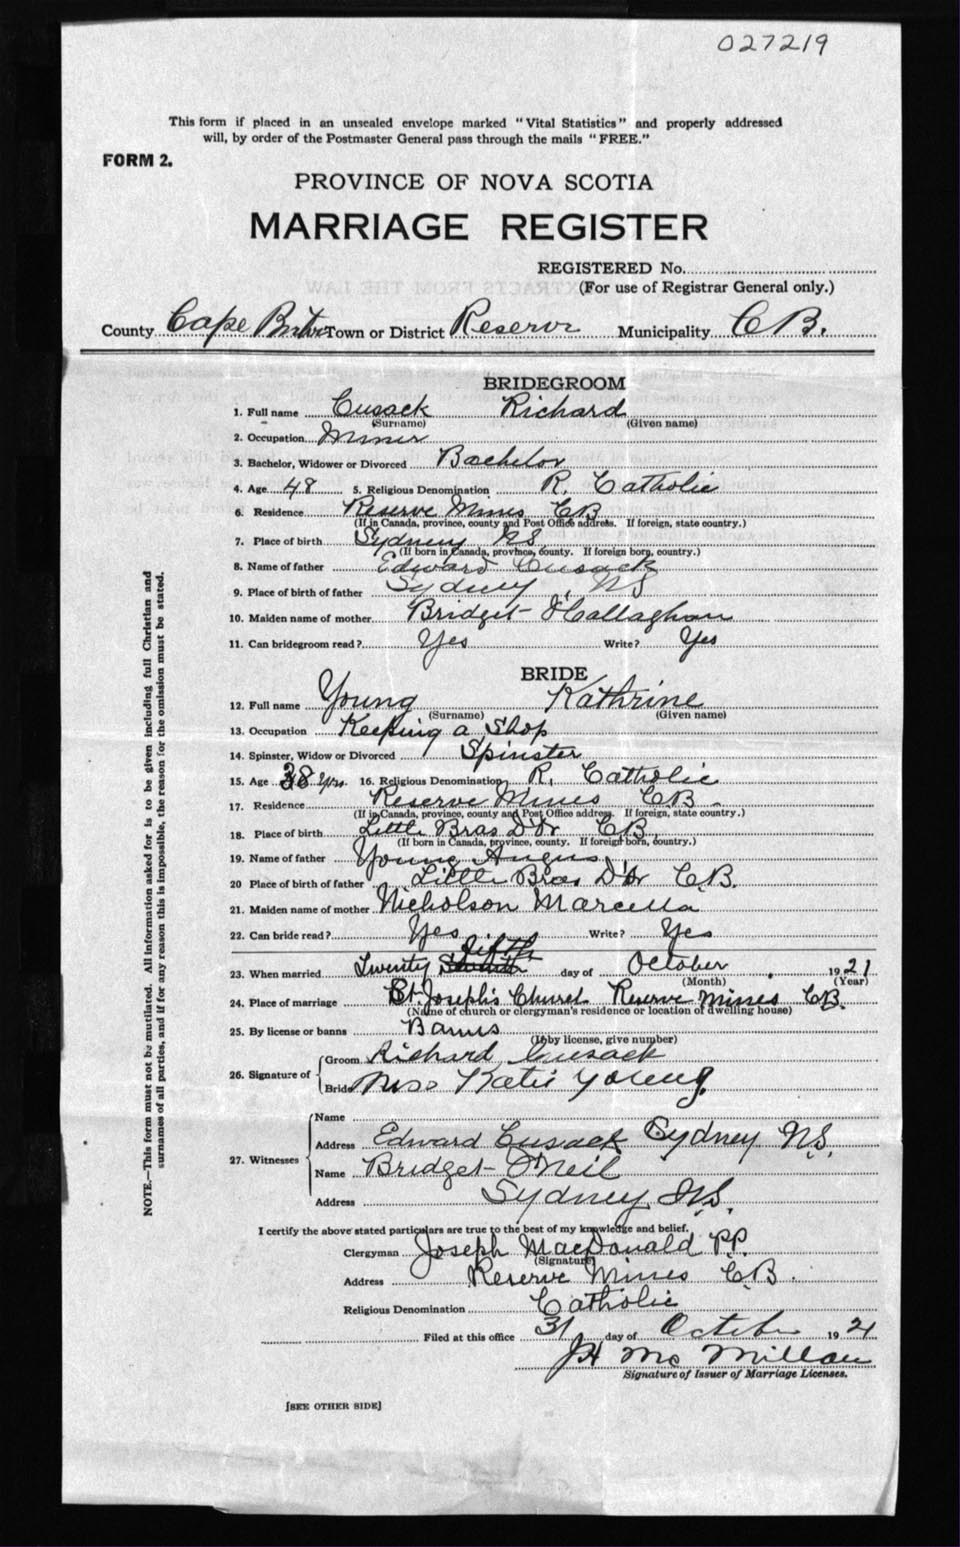 027219
This form if placed in an unsealed envelope marked "Vital Statistics" and properly addressed
will, by order of the Postmaster General pass through the mails "FREE."
FORM 2.
PROVINCE OF NOVA SCOTIA
MARRIAGE REGISTER
REGISTERED No.
(For use of Registrar General only.)
County Cape Breton Town or District Reserve Municipality C B.
BRIDEGROOM
1. Full name Cusack Richard
(Surname) (Given name)
2. Occupation Miner
3. Bachelor, Widower or Divorced Bachelor
4. Age 48 5. Religious Denomination R. Catholic
6. Residence Reserve Mines CB
(If in Canada, province, county and Post Office address. If foreign, state country.)
7. Place of birth Sydney NS
(If born in Canada, province, county. If foreign born, country.)
8. Name of father Edward Cusack
9. Place of birth of father Sydney, NS
10. Maiden name of mother Bridget O'Callaghan
11. Can bridegroom read? Yes Write? Yes
BRIDE
12. Full name Young Kathrine
(Surname) (Given name)
13. Occupation Keeping a Shop
14. Spinster, Widow or Divorced Spinster
15. Age 38 yrs. 16. Religious Denomination R. Catholic
17. Residence Reserve Mines C.B.
(If in Canada, province, county and Post Office address. If foreign, state country.)
18. Place of birth Little Bras D'Or CB.
(If born in Canada, province, county. If foreign born, country.)
19. Name of father Young Angus
20 Place of birth of father Little Bras D'Or C.B.
21. Maiden name of mother Nicholson Marcella
22. Can bride read? Yes Write? Yes
fifth
23. When married Twenty day of October 1921
(Month) (Year)
24. Place of marriage St. Joseph's Church Reserve Mines CB.
(Name of church or clergyman's residence or location of dwelling house)
25. By license or banns Banns
(If by license, give number)
26. Signature of Groom Richard Cusack
Bride Miss Katie Young
27. Witnesses Name
Address Edward Cusack Sydney N.S.
Name Bridget O'Neil
Address Sydney N.S.
I certify the above stated particulars are true to the best of my knowledge and belief.
Clergyman Joseph MacDonald P.P.
(Signature)
Address Reserve Mines C.B.
Religious Denomination Catholic
Filed at this office 31 day of October 1921
JH McMillan
Signature of Issuer of Marriage Licenses.
[SEE OTHER SIDE]
NOTE.—This form must not be mutilated. All information asked for is to be given including full Christian and
surnames of all parties, and if for any reason this is impossible, the reason for the omission must be stated.